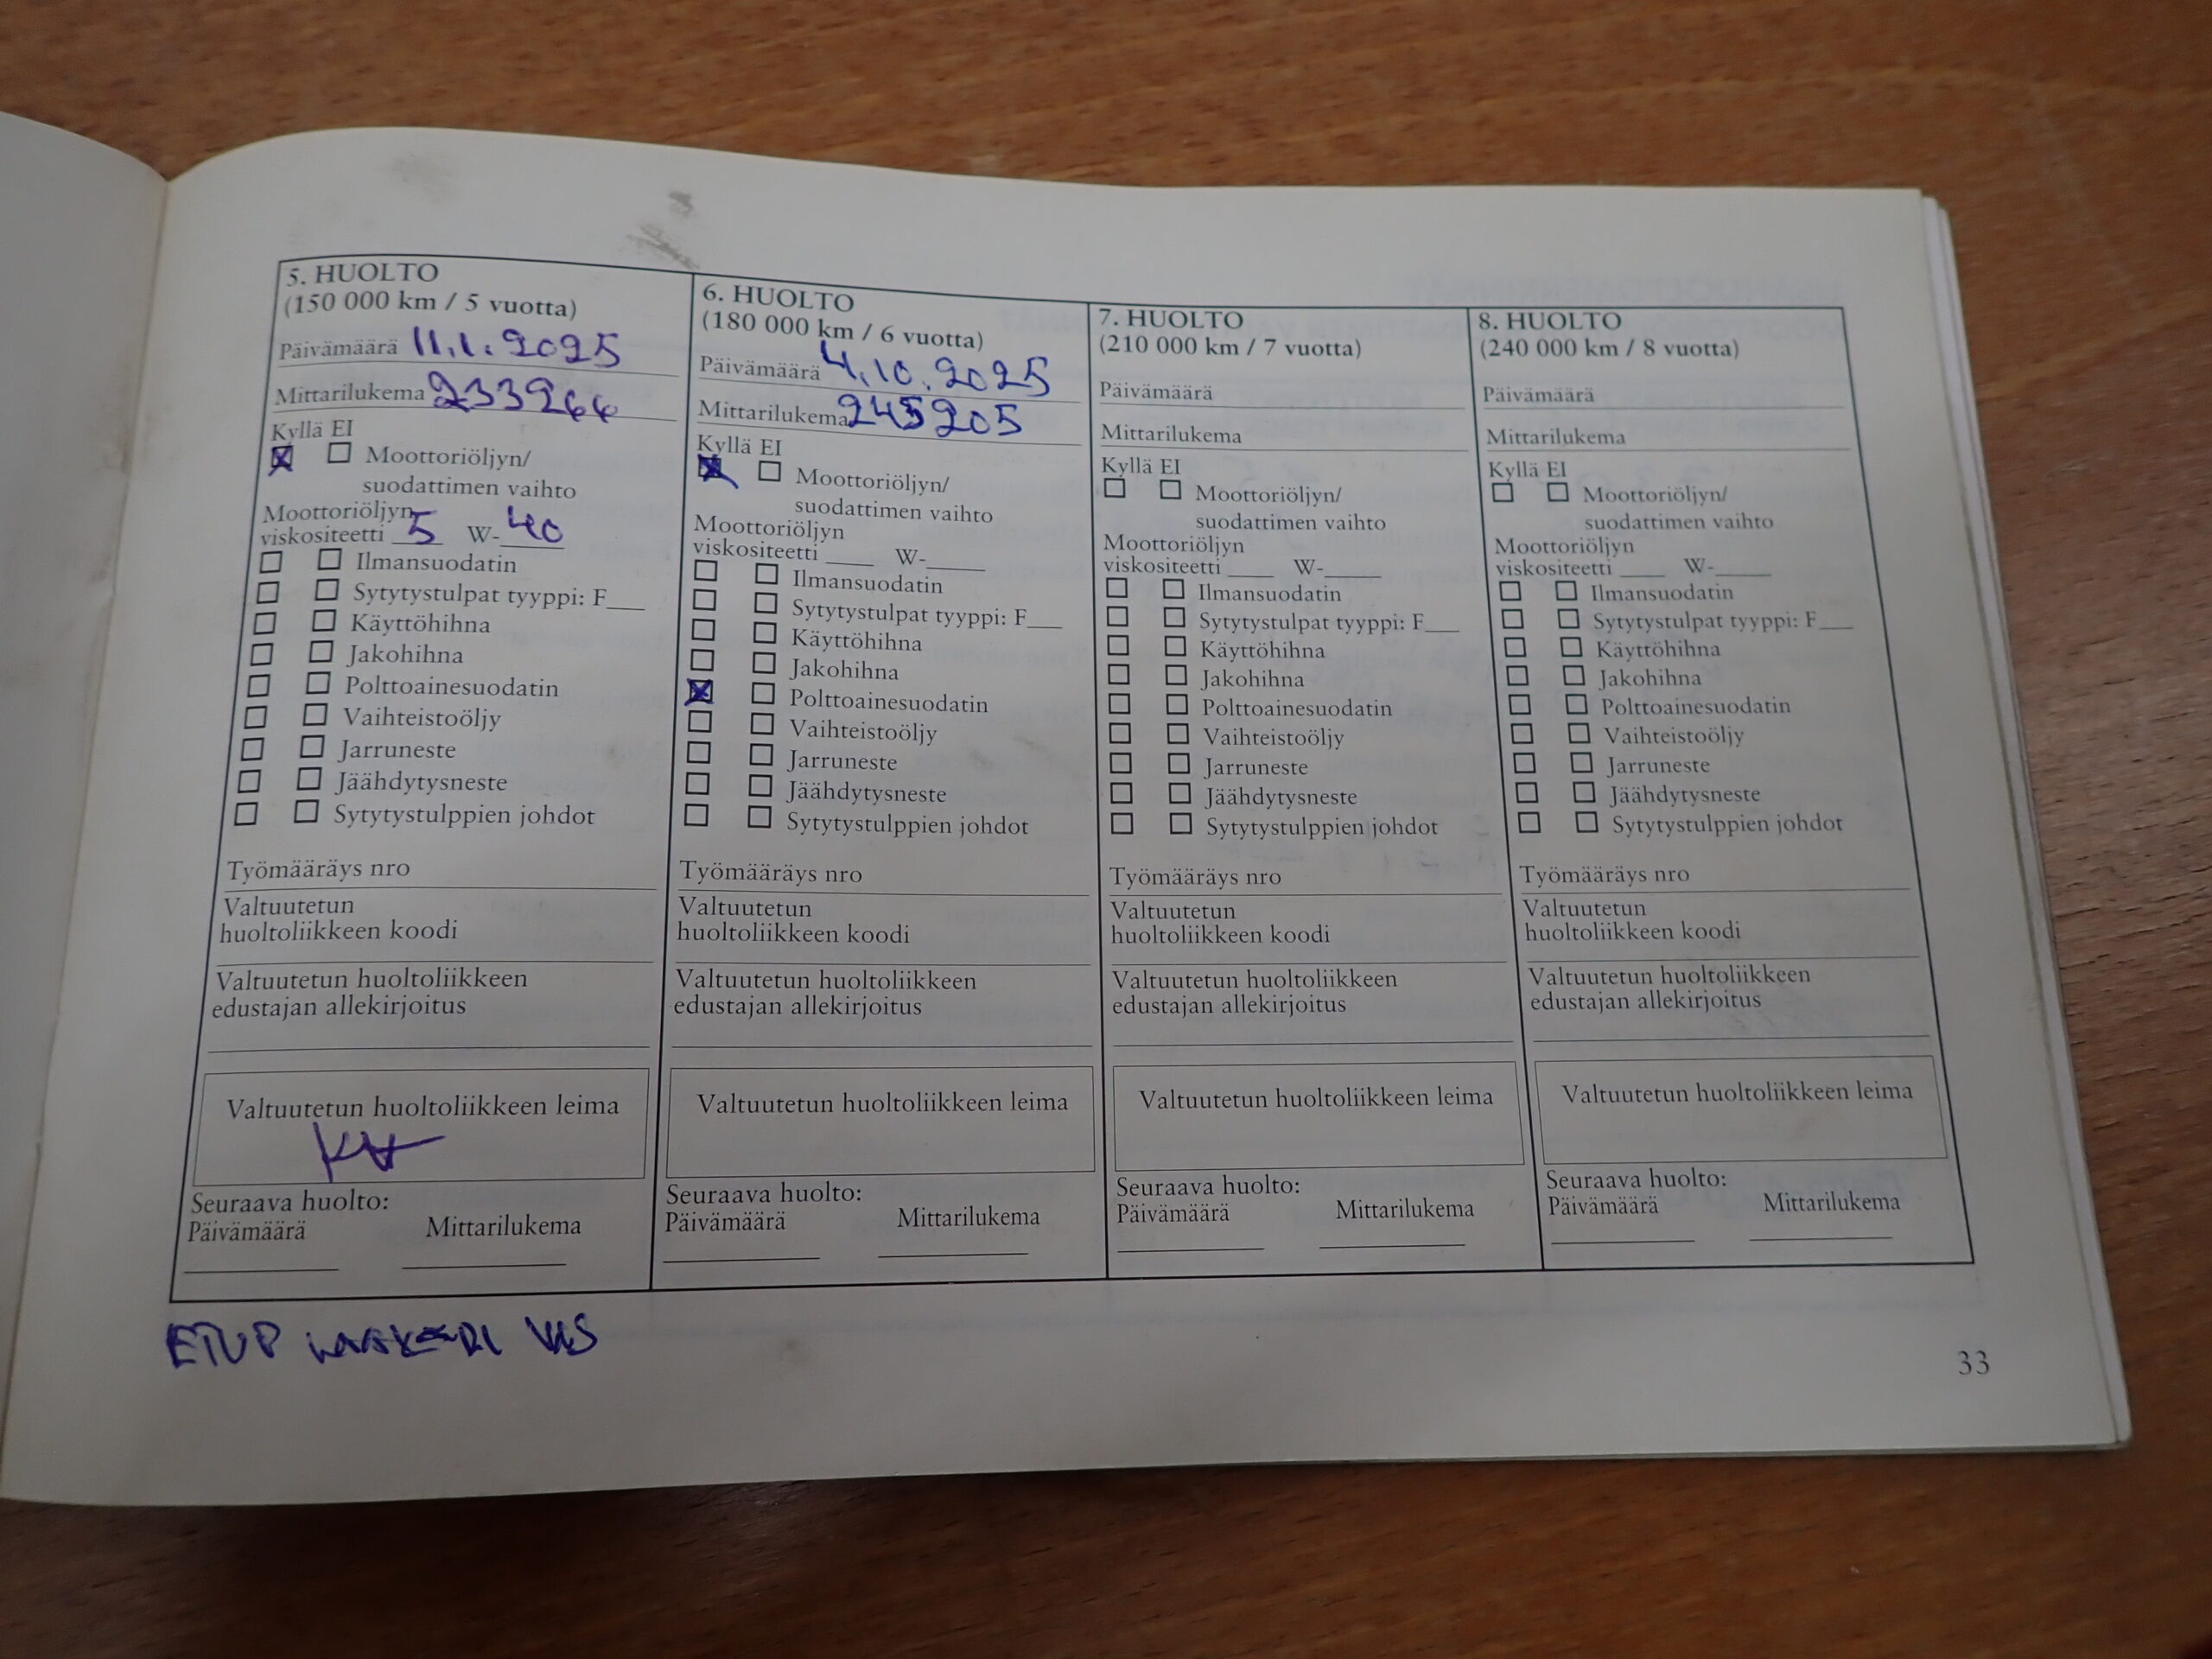 5. HUOLTO
(150 000 km / 5 vuotta)
Päivämäärä 11.1.2025
Mittarilukema 233266
Kyllä EI
Moottoriöljyn/
suodattimen vaihto
Moottoriöljyn
viskositeetti 5 W-40
Ilmansuodatin
Sytytystulpat tyyppi: F___
Käyttöhihna
Jakohihna
Polttoainesuodatin
Vaihteistoöljy
Jarruneste
Jäähdytysneste
Sytytystulppien johdot
Työmääräys nro
Valtuutetun
huoltoliikkeen koodi
Valtuutetun huoltoliikkeen
edustajan allekirjoitus
Valtuutetun huoltoliikkeen leima
Seuraava huolto:
Päivämäärä Mittarilukema
6. HUOLTO
(180 000 km / 6 vuotta)
Päivämäärä 4.10.2025
Mittarilukema 245205
Kyllä EI
Moottoriöljyn/
suodattimen vaihto
Moottoriöljyn
viskositeetti ___ W-___
Ilmansuodatin
Sytytystulpat tyyppi: F___
Käyttöhihna
Jakohihna
Polttoainesuodatin
Vaihteistoöljy
Jarruneste
Jäähdytysneste
Sytytystulppien johdot
Työmääräys nro
Valtuutetun
huoltoliikkeen koodi
Valtuutetun huoltoliikkeen
edustajan allekirjoitus
Valtuutetun huoltoliikkeen leima
Seuraava huolto:
Päivämäärä Mittarilukema
7. HUOLTO
(210 000 km / 7 vuotta)
Päivämäärä
Mittarilukema
Kyllä EI
Moottoriöljyn/
suodattimen vaihto
Moottoriöljyn
viskositeetti ___ W-___
Ilmansuodatin
Sytytystulpat tyyppi: F___
Käyttöhihna
Jakohihna
Polttoainesuodatin
Vaihteistoöljy
Jarruneste
Jäähdytysneste
Sytytystulppien johdot
Työmääräys nro
Valtuutetun
huoltoliikkeen koodi
Valtuutetun huoltoliikkeen
edustajan allekirjoitus
Valtuutetun huoltoliikkeen leima
Seuraava huolto:
Päivämäärä Mittarilukema
8. HUOLTO
(240 000 km / 8 vuotta)
Päivämäärä
Mittarilukema
Kyllä EI
Moottoriöljyn/
suodattimen vaihto
Moottoriöljyn
viskositeetti ___ W-___
Ilmansuodatin
Sytytystulpat tyyppi: F___
Käyttöhihna
Jakohihna
Polttoainesuodatin
Vaihteistoöljy
Jarruneste
Jäähdytysneste
Sytytystulppien johdot
Työmääräys nro
Valtuutetun
huoltoliikkeen koodi
Valtuutetun huoltoliikkeen
edustajan allekirjoitus
Valtuutetun huoltoliikkeen leima
Seuraava huolto:
Päivämäärä Mittarilukema
ETUP
33